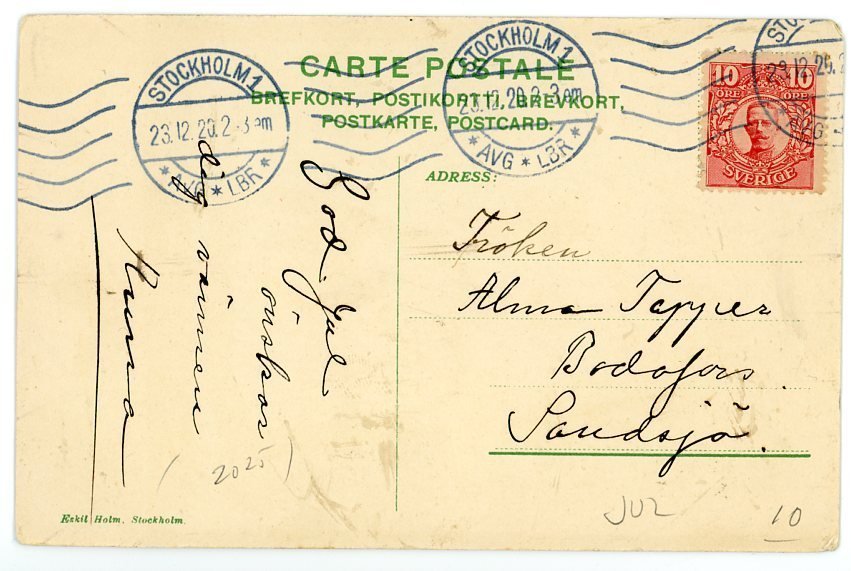 CARTE POSTALE
BREFKORT, POSTIKORTTI, BREVKORT,
POSTKARTE, POSTCARD.
STOCKHOLM 1
23.12.20.2-3 em
* AVG * LBR *
STOCKHOLM 1
23.12.20.2-3 em
* AVG * LBR *
10 10
ÖRE ÖRE
SVERIGE
ADRESS:
Fröken
Alma Tapper
Bodafors.
Sandsjö.
God Jul
önskar
dig vännen
(2025)
JUL
10
Eskil Holm, Stockholm.